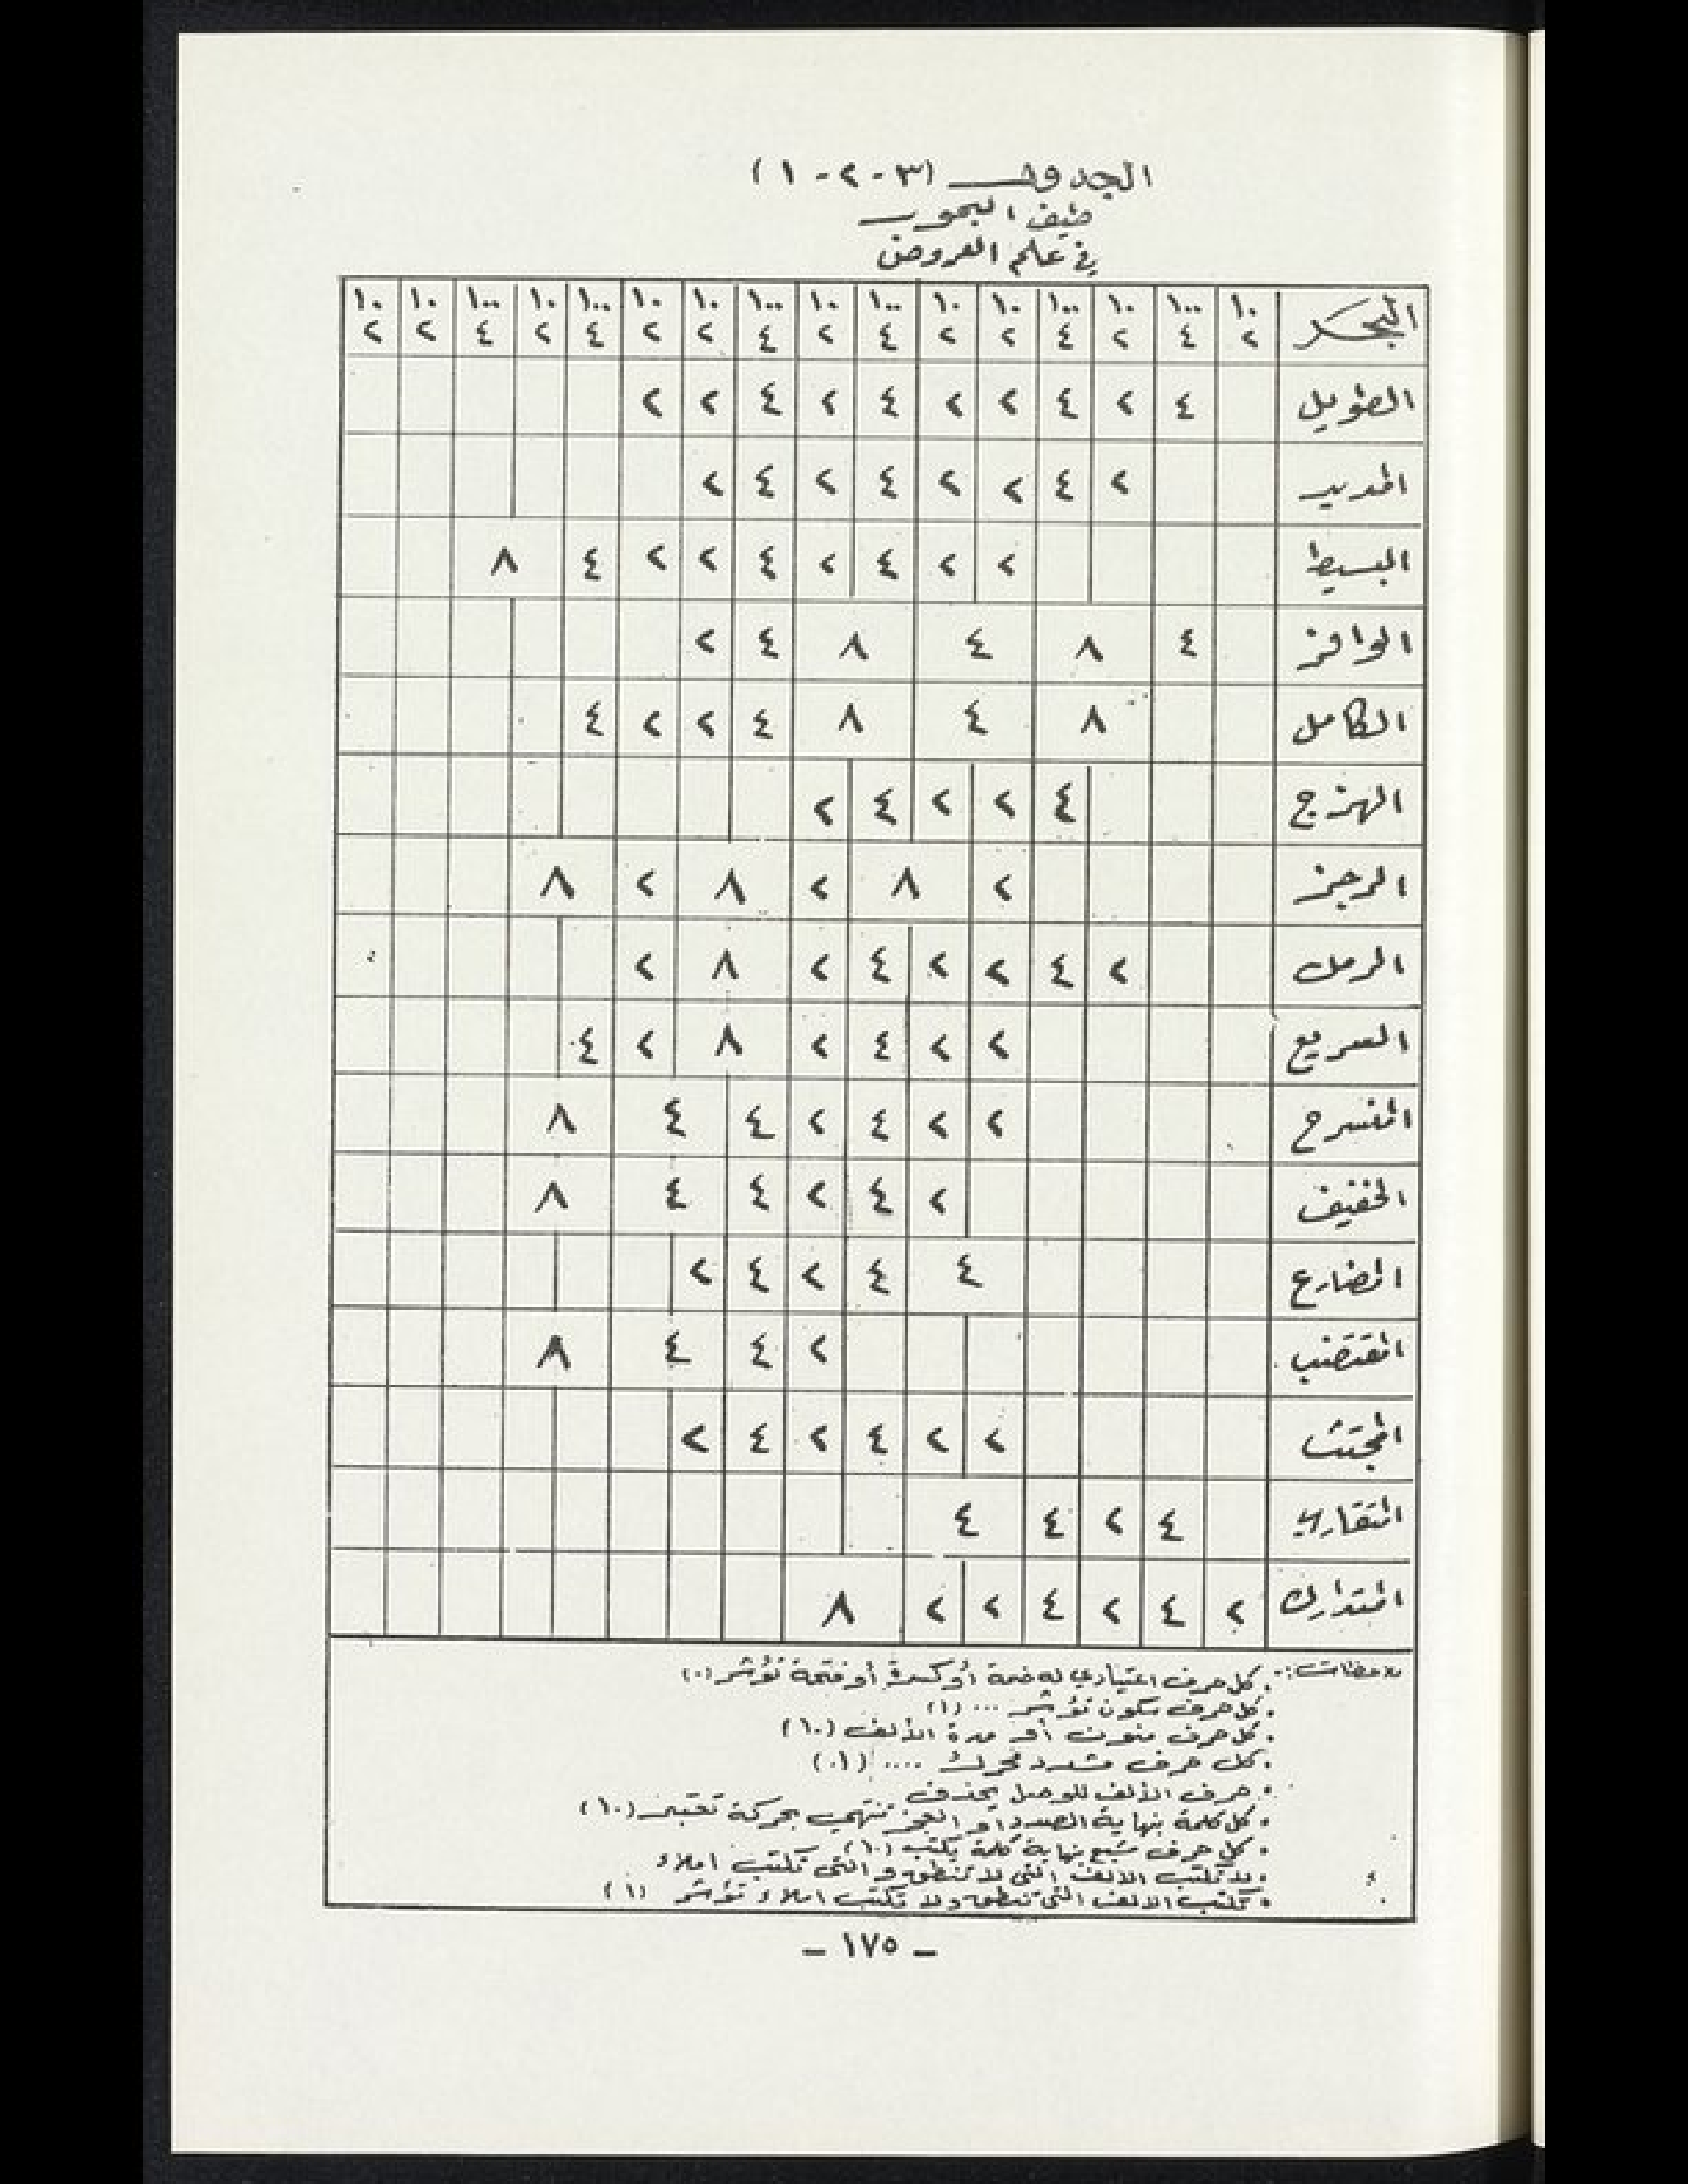 الجدول (٣-٢-١)
طيف البحور
في علم العروض
البحر ١٠ ١٠٠ ١٠ ١٠٠ ١٠ ١٠ ١٠٠ ١٠ ١٠٠ ١٠ ١٠ ١٠٠ ١٠ ١٠٠ ١٠ ١٠
٢ ٤ ٢ ٤ ٢ ٢ ٤ ٢ ٤ ٢ ٢ ٤ ٢ ٤ ٢ ٢
الطويل ٤ ٢ ٤ ٢ ٢ ٤ ٢ ٤ ٢ ٢
المديد ٢ ٤ ٢ ٢ ٤ ٢ ٤ ٢
البسيط ٢ ٢ ٤ ٢ ٤ ٢ ٢ ٤ ٨
الوافر ٤ ٨ ٤ ٨ ٤ ٢
الكامل ٨ ٤ ٨ ٤ ٢ ٢ ٤
الهزج ٤ ٢ ٢ ٤ ٢
الرجز ٢ ٨ ٢ ٨ ٢ ٨
الرمل ٢ ٤ ٢ ٢ ٤ ٢ ٨ ٢
السريع ٢ ٢ ٤ ٢ ٨ ٢ ٤
المنسرح ٢ ٢ ٤ ٢ ٤ ٤ ٨
الخفيف ٢ ٤ ٢ ٤ ٤ ٨
المضارع ٤ ٤ ٢ ٤ ٢
المقتضب ٢ ٤ ٤ ٨
المجتث ٢ ٢ ٤ ٢ ٤ ٢
المتقارب ٤ ٢ ٤ ٤
المتدارك ٢ ٤ ٢ ٤ ٢ ٢ ٨
ملاحظات :- . كل حرف اعتيادي له ضمة أو كسرة أو فتحة تؤشر (٠)
. كل حرف سكون تؤشر ... (١)
. كل حرف منون أو مدة الألف (١٠)
. كل حرف مشدد محرك .... (٠١)
. حرف الألف للوصل يحذف
. كل كلمة بنهاية الصدر او العجز تنتهي بحركة تعتبر (١٠)
. كل حرف مشبع بنهاية كلمة يكتب (١٠)
. لا تكتب الالف التي لا تنطق والتي تكتب املاء
. تكتب الالف التي تنطق ولا تكتب املاء تؤشر (١)
- ١٧٥ -